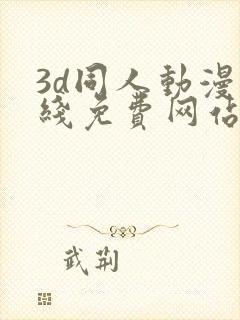 3d同人動漫
綫免費网佔
武荆